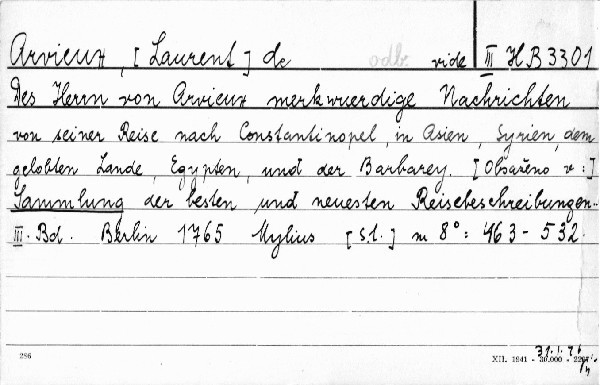 Arvieux, [Laurent] de odb. vide III H B 3301
Des Herrn von Arvieux merkwuerdige Nachrichten
von seiner Reise nach Constantinopel, in Asien, Syrien, dem
gelobten Lande, Egypten, und der Barbarey. [Obsaženo v:]
Sammlung der besten und neuesten Reisebeschreibungen..
III. Bd. Berlin 1765 Mylius [s.l.] m 8°: 463-532.
286
XII. 1941 - 30.000 -
31.1.76